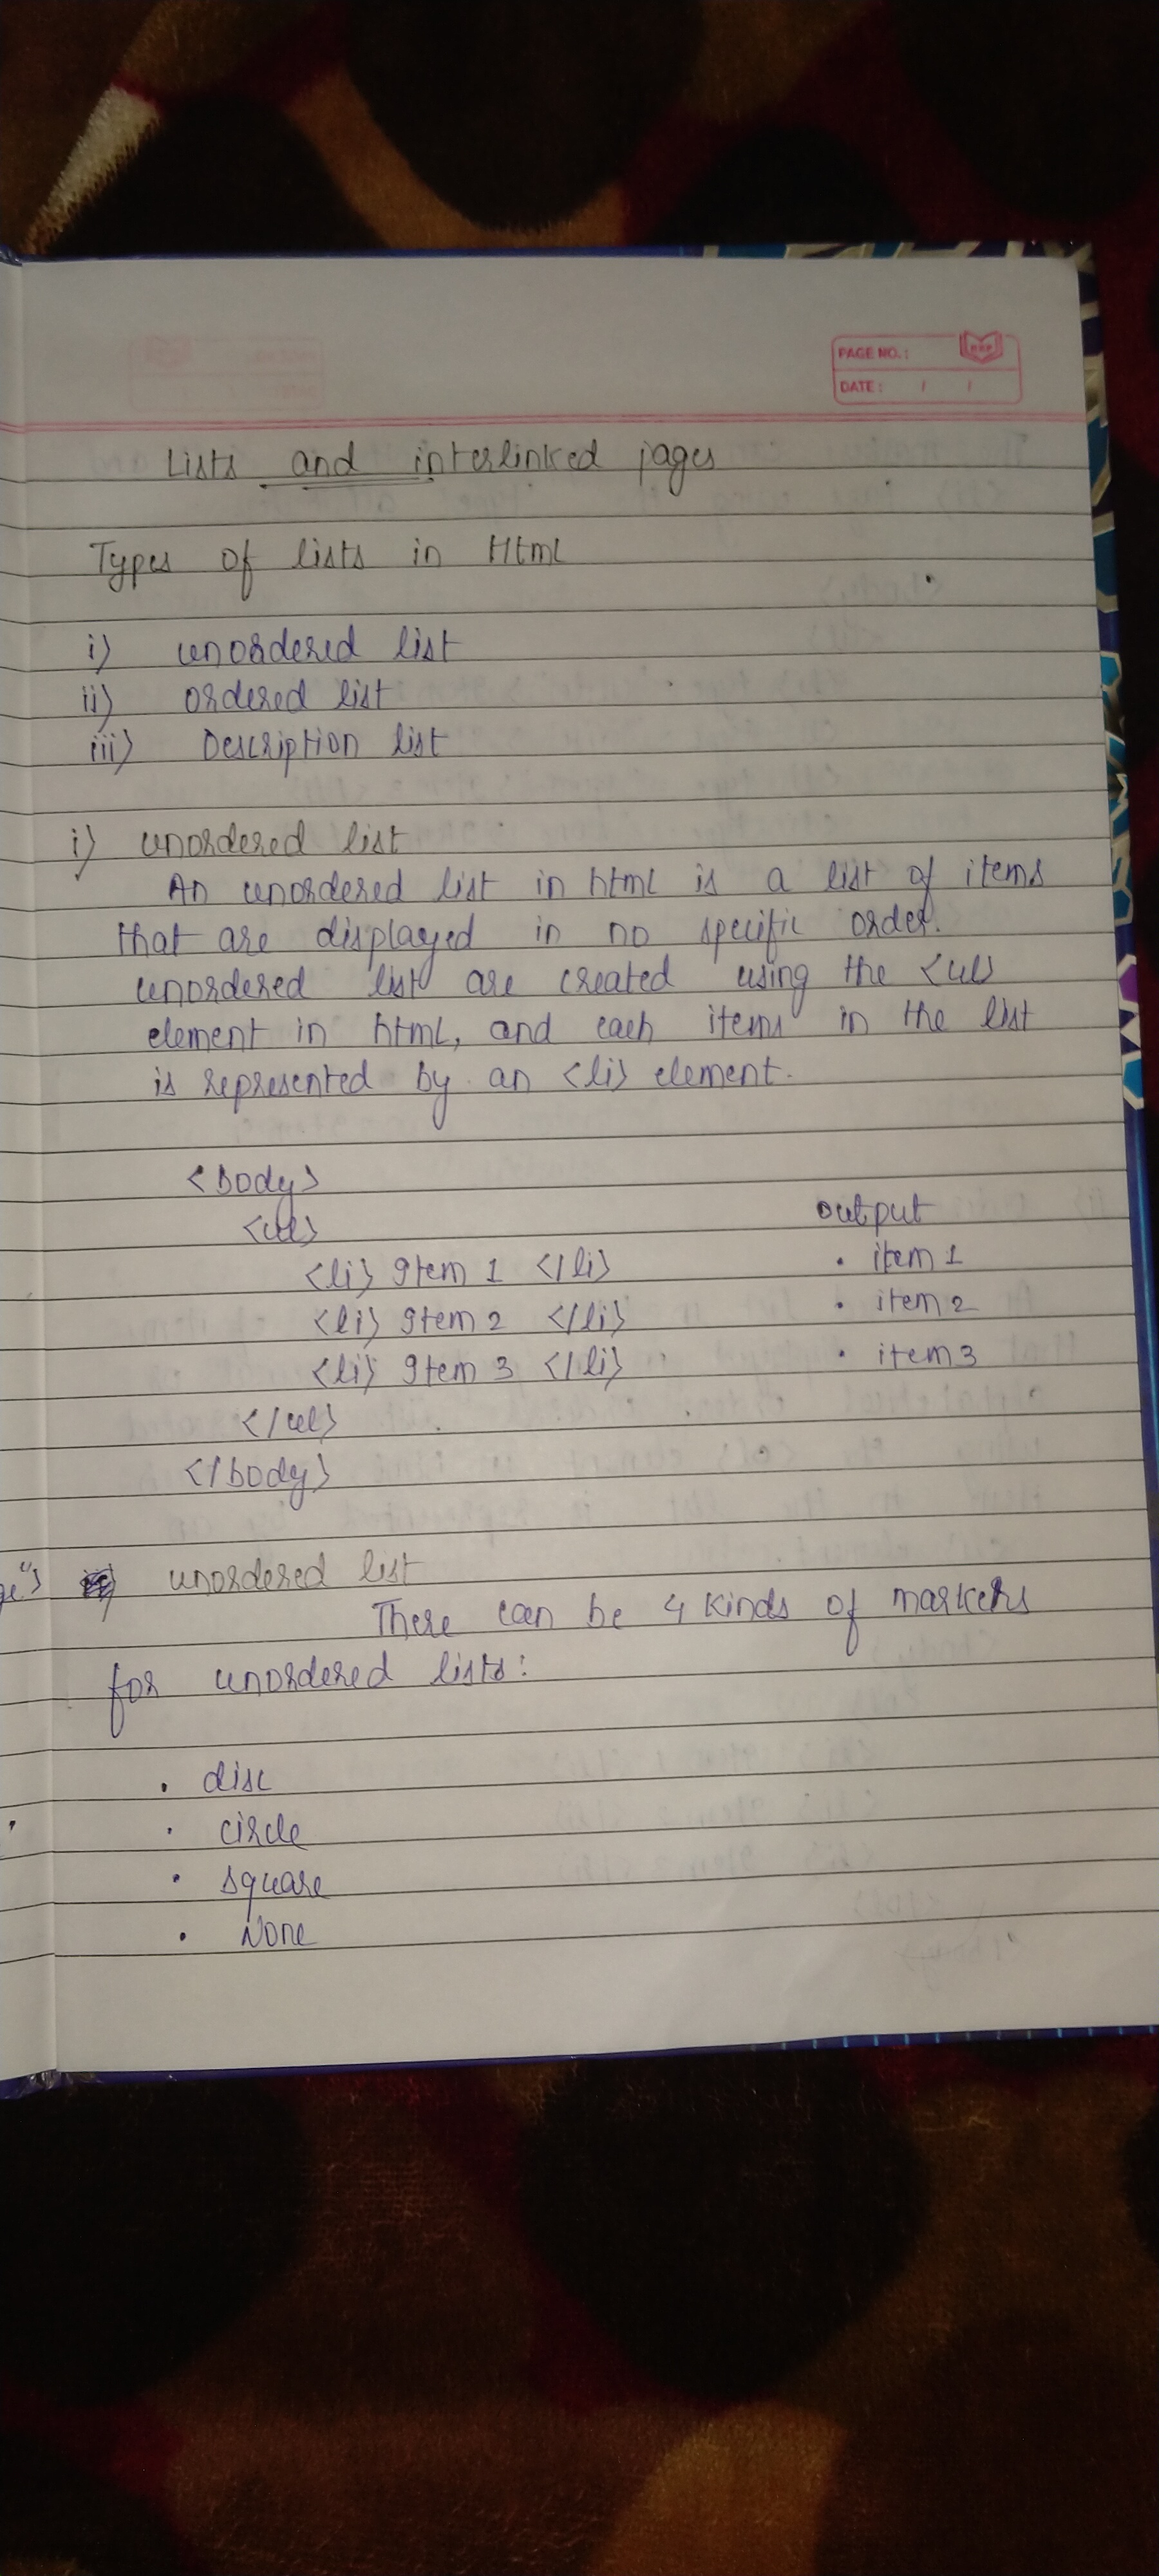 PAGE NO.:
DATE: / /
Lists and interlinked pages
Types of lists in Html
i) unordered list
ii) ordered list
iii) Description list
i) unordered list
An unordered list in html is a list of items
that are displayed in no specific order.
unordered list are created using the <ul>
element in html, and each items in the list
is represented by an <li> element.
<body>
<ul>
output
<li> Item 1 </li> • item 1
<li> Item 2 </li> • item 2
<li> Item 3 </li> • item 3
</ul>
</body>
unordered list
There can be 4 kinds of markers
for unordered lists:
• disc
• circle
• square
• None